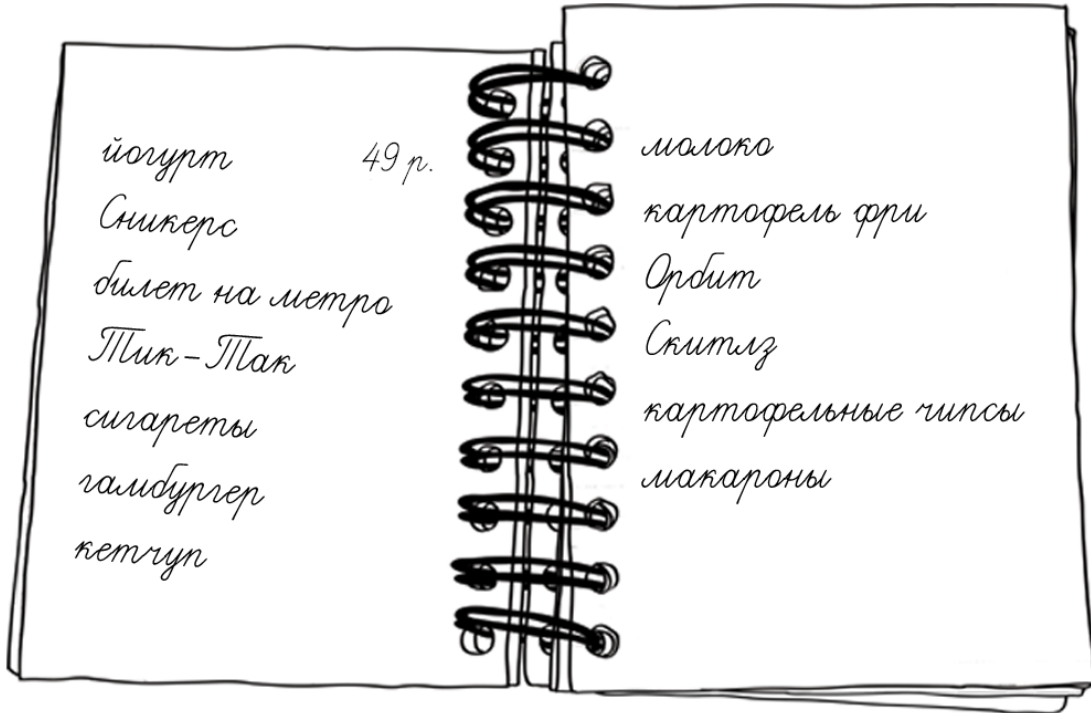 йогурт 49 р.
Сникерс
билет на метро
Тик-Так
сигареты
гамбургер
кетчуп
молоко
картофель фри
Орбит
Скитлз
картофельные чипсы
макароны